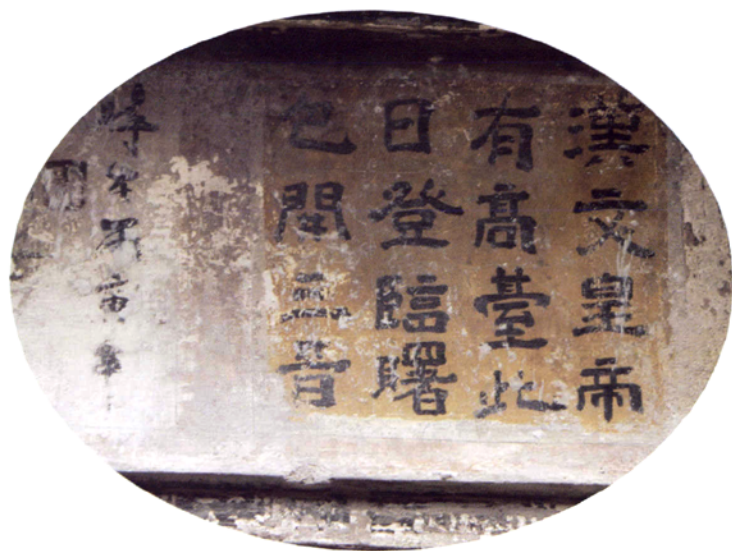 漢文皇帝
有高臺此
日登臨曙
色開三晉
時
寅